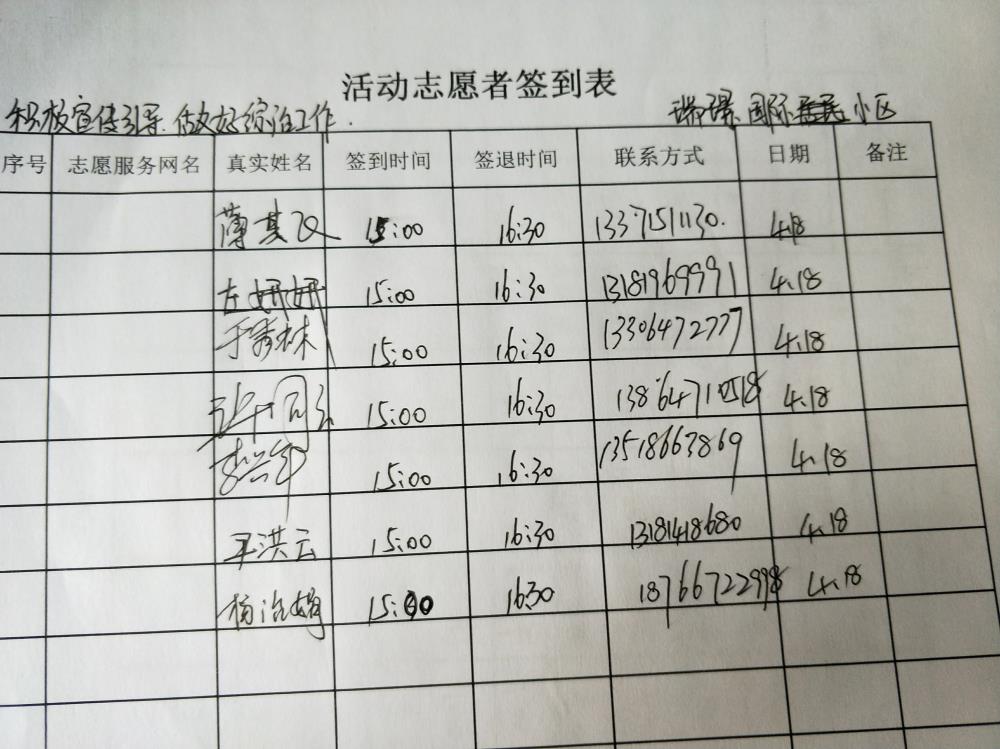 活动志愿者签到表
积极宣传引导 做好综治工作. 瑞璟国际 小区
序号 志愿服务网名 真实姓名 签到时间 签退时间 联系方式 日期 备注
薄其 15:00 16:30 13371511130. 4.18
左妍妍 15:00 16:30 13181969991 4.18
于秀林 15:00 16:30 13306472777 4.18
15:00 16:30 13864710518 4.18
15:00 16:30 13518663869 4.18
王洪云 15:00 16:30 13181418680 4.18
杨治娟 15:00 16:30 18766722998 4.18